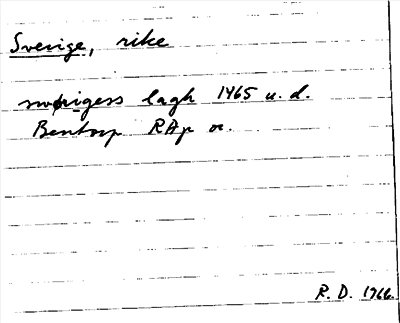 Sverige, rike
swerigess lagh 1465 u.d.
Bentorp RAp or.
R. D. 1966.